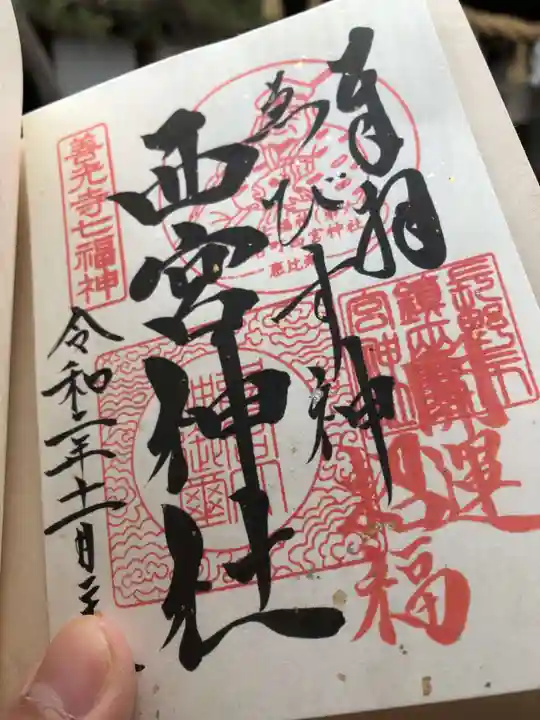 奉拝
ゑびす神
西宮神社
善光寺七福神
令和二年十一月
開運
招福
西宮神社
恵比
長野市
鎮座
宮神